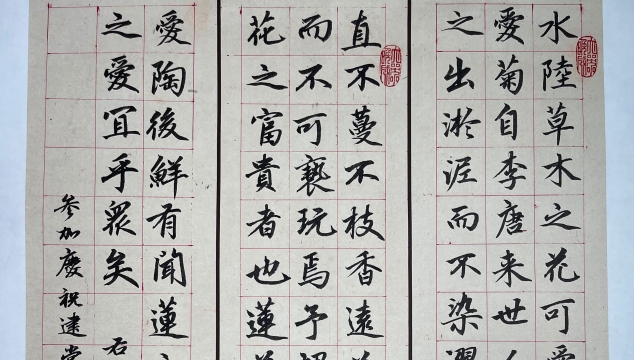 水陸草木之花可愛
愛菊自李唐来世
之出淤泥而不染濯
直不蔓不枝香遠
而不可褻玩焉予
花之富貴者也蓮
愛陶後鮮有聞蓮
之愛冝乎衆矣 右
参加慶祝建党